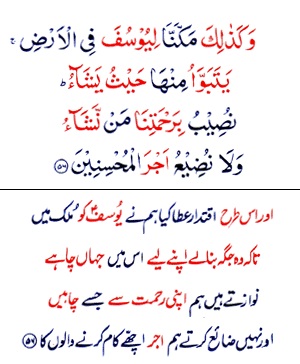 وَكَذٰلِكَ مَكَّنَّا لِيُوْسُفَ فِى الْاَرْضِ ۚ
يَتَبَوَّاُ مِنْهَا حَيْثُ يَشَآءُ ؕ
نُصِيْبُ بِرَحْمَتِنَا مَنْ نَّشَآءُ
وَلَا نُضِيْعُ اَجْرَ الْمُحْسِنِيْنَ ﴿۵۶﴾
اور اس طرح اقتدار عطا کیا ہم نے یُوسُفؑ کو مُلک میں
تاکہ وہ جگہ بنالے اپنے لیے اس میں جہاں چاہے
نوازتے ہیں ہم اپنی رحمت سے جسے چاہیں
اور نہیں ضائع کرتے ہم اجر اچھّے کام کرنے والوں کا ﴿۵۶﴾